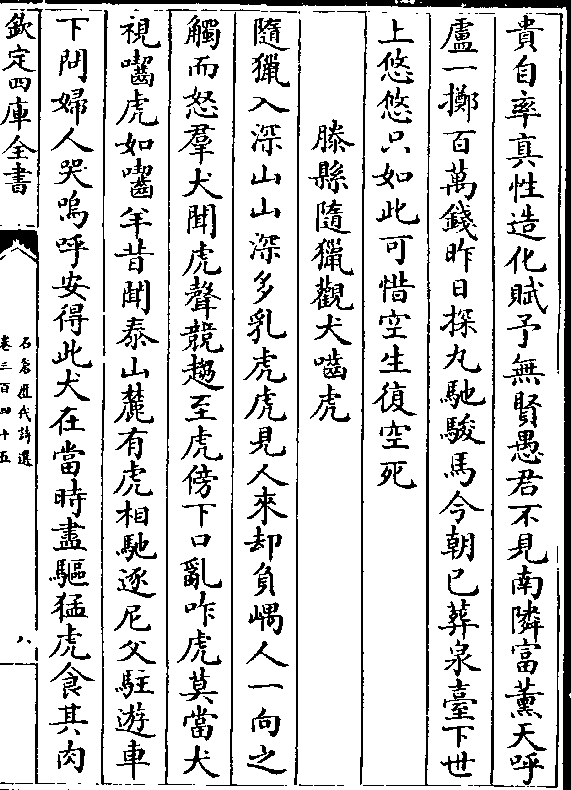 貴自率真性造化賦予無賢愚君不見南隣富薰天呼
盧一擲百萬錢昨日探丸馳駿馬今朝已葬泉臺下世
上悠悠只如此可惜空生復空死
滕縣隨獵觀犬嚙虎
隨獵入深山山深多乳虎虎見人來却負嵎人一向之
觸而怒羣犬聞虎聲競趨至虎傍下口亂咋虎莫當犬
視嚙虎如嚙羊昔聞泰山麓有虎相馳逐尼父駐遊車
下問婦人哭嗚呼安得此犬在當時盡驅猛虎食其肉
欽定四庫全書
石倉歷代詩選
卷三百四十五
八